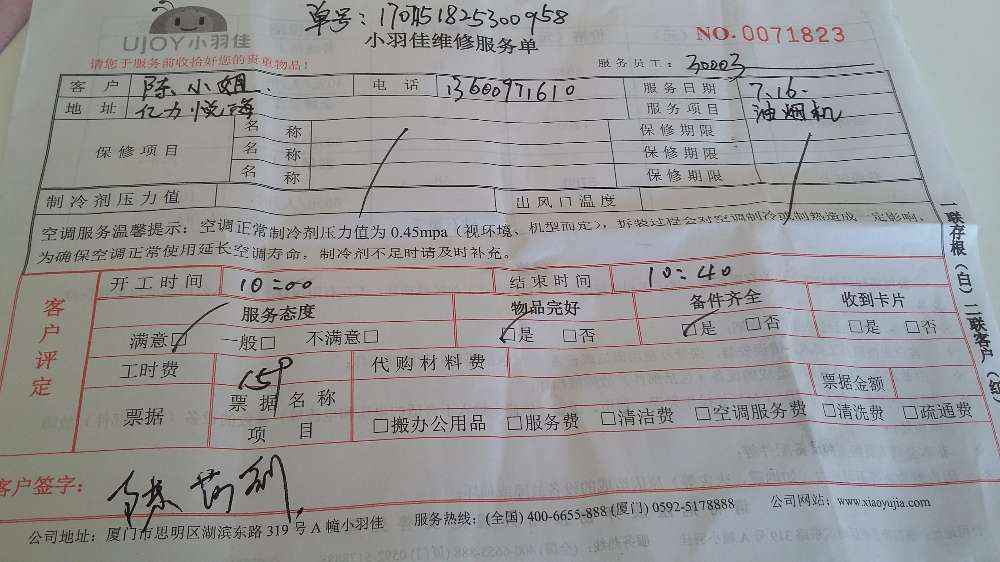 单号:1707151825300958
UJOY小羽佳
小羽佳维修服务单
NO.0071823
请您于服务前收拾好您的贵重物品!
服务员工: 30003
客户 陈小姐 电话 13600971610 服务日期 7.16.
地址 亿力悦海 服务项目 油烟机
保修项目 名称 保修期限
名称 保修期限
名称 保修期限
制冷剂压力值 出风口温度
空调服务温馨提示:空调正常制冷剂压力值为0.45mpa(视环境、机型而定),拆装过程会对空调制冷或制热造成一定影响,
为确保空调正常使用延长空调寿命,制冷剂不足时请及时补充。
客户评定
开工时间 10:00 结束时间 10:40
服务态度 物品完好 备件齐全 收到卡片
满意☑ 一般□ 不满意□ ☑是 □否 ☑是 □否 □是 □否
工时费 159 代购材料费
票据 票据名称 票据金额
项目 □搬办公用品 □服务费 □清洁费 □空调服务费 □清洗费 □疏通费
客户签字:
公司地址:厦门市思明区湖滨东路319号A幢小羽佳 服务热线:(全国)400-6655-888 (厦门)0592-5178888 公司网站:www.xiaoyujia.com
一联存根(白)二联客户(红)